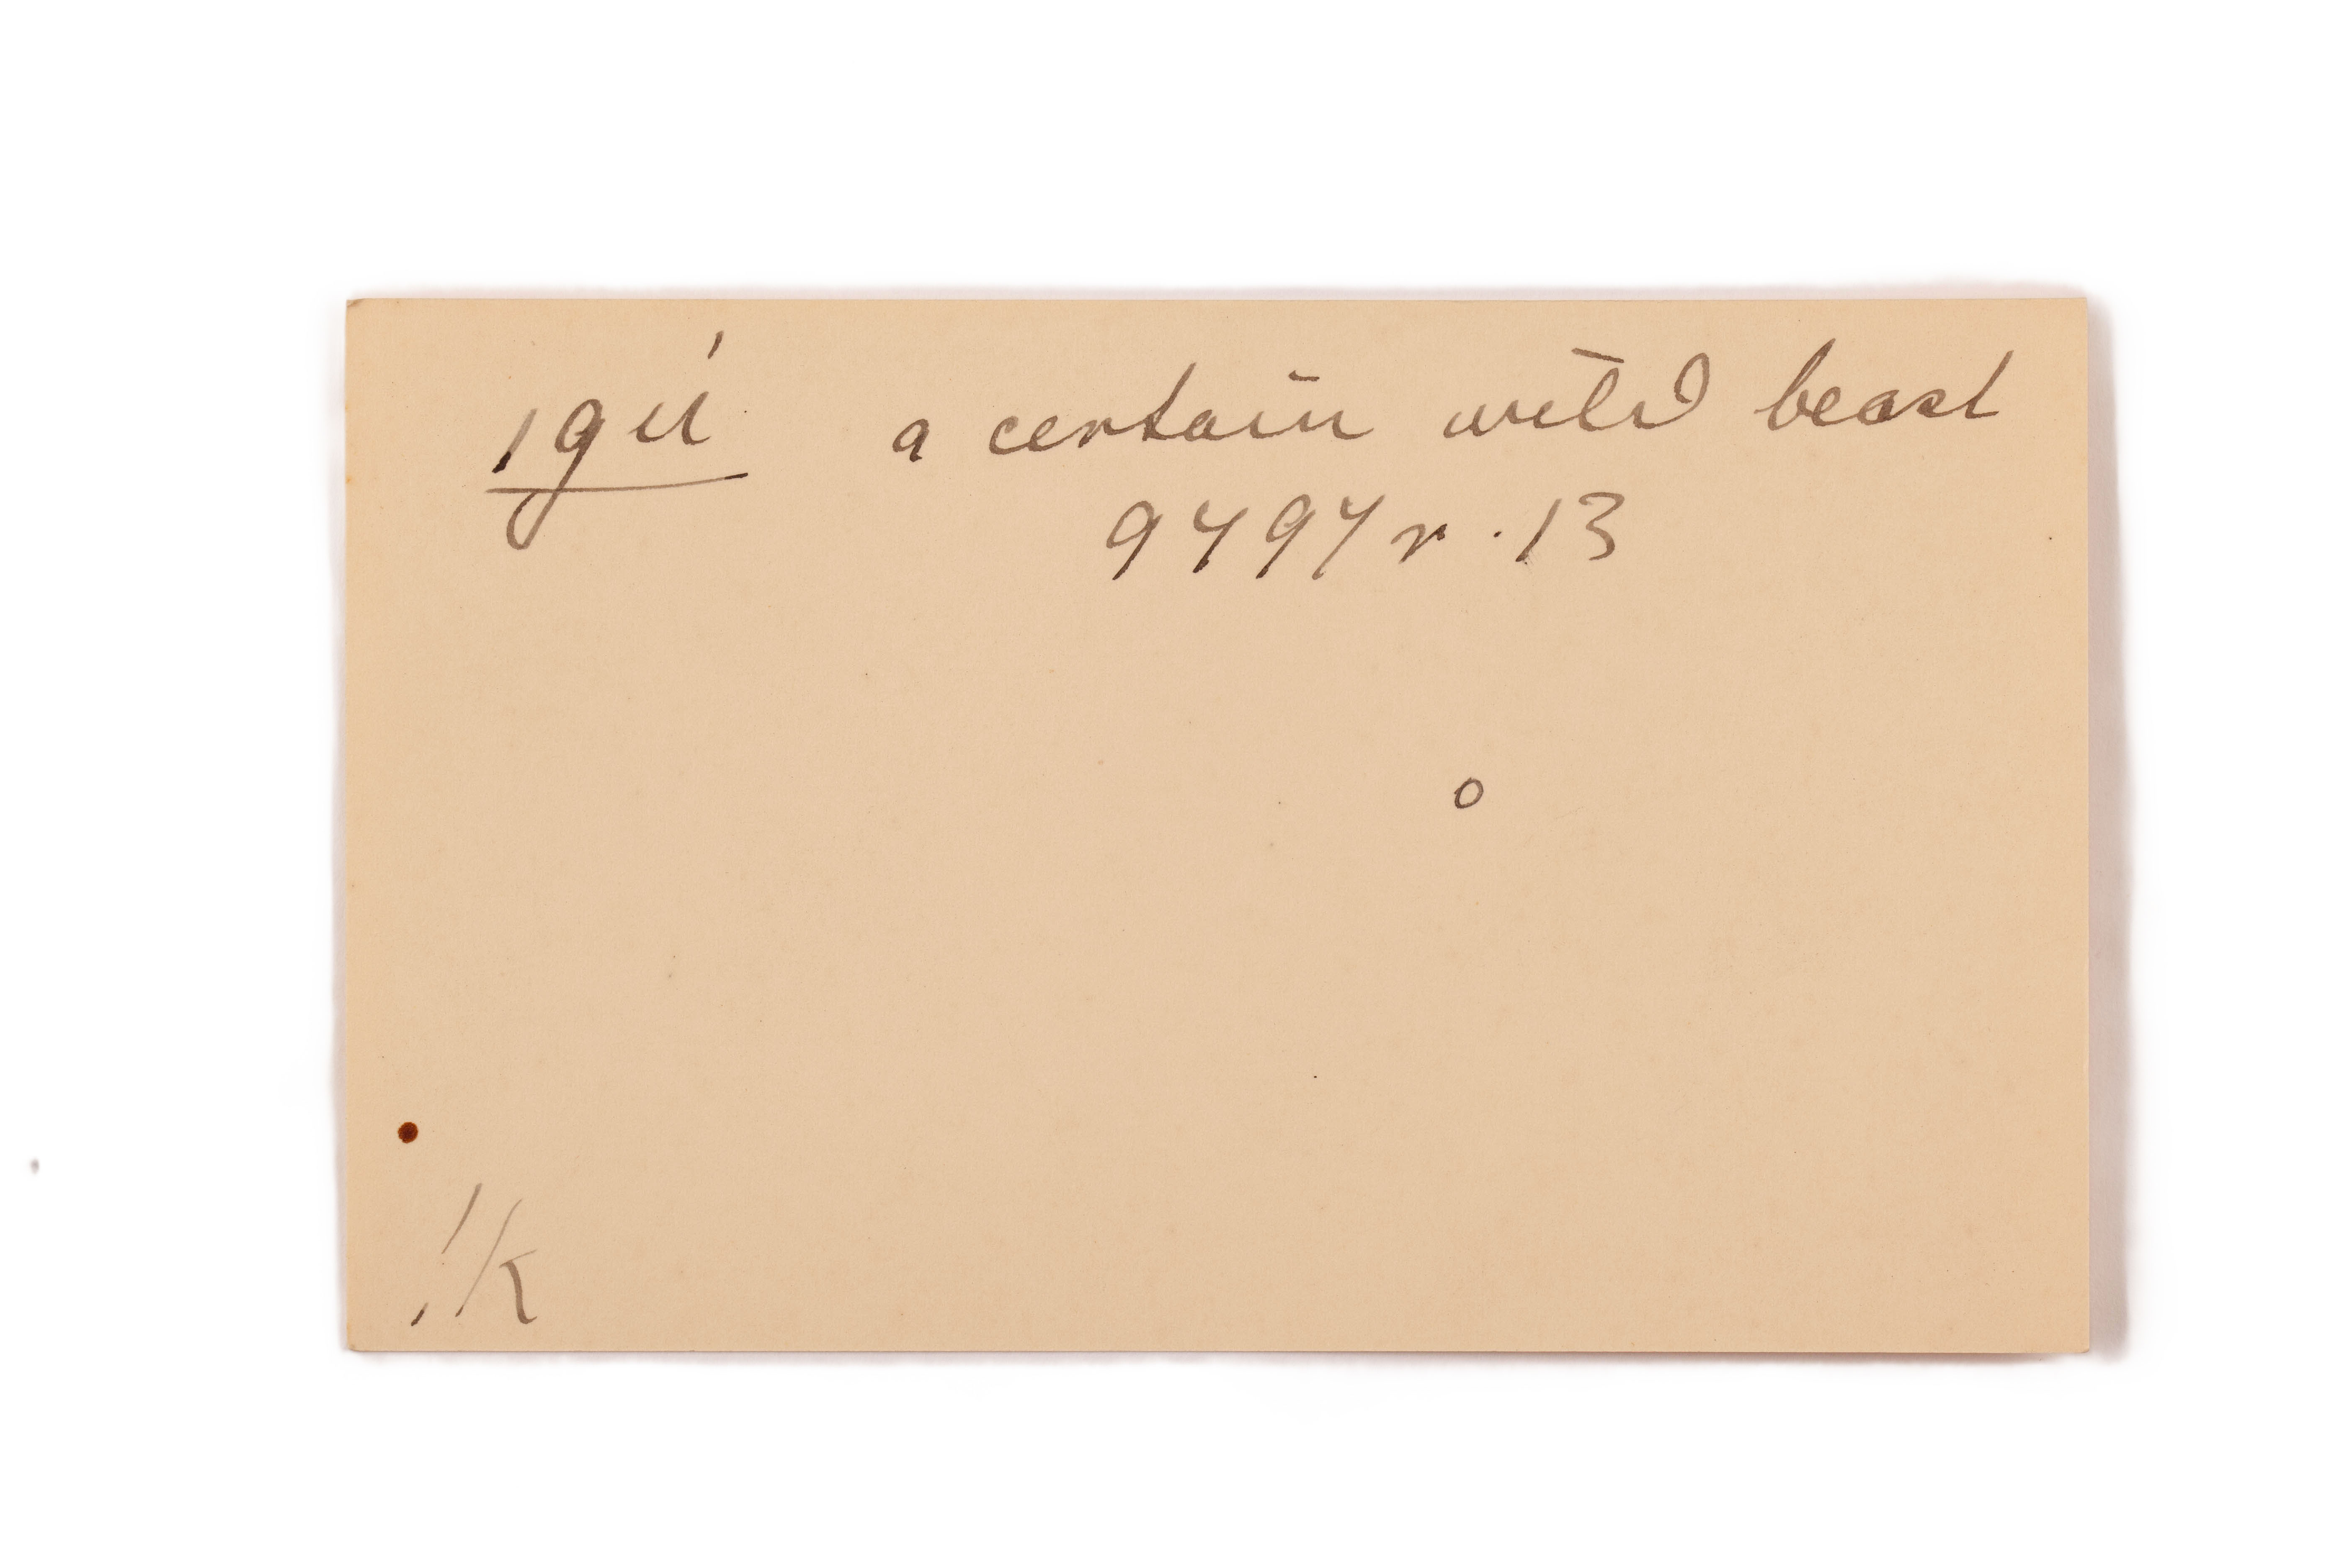 ıgú a certain wild beast
9797 r. 13
o
!k